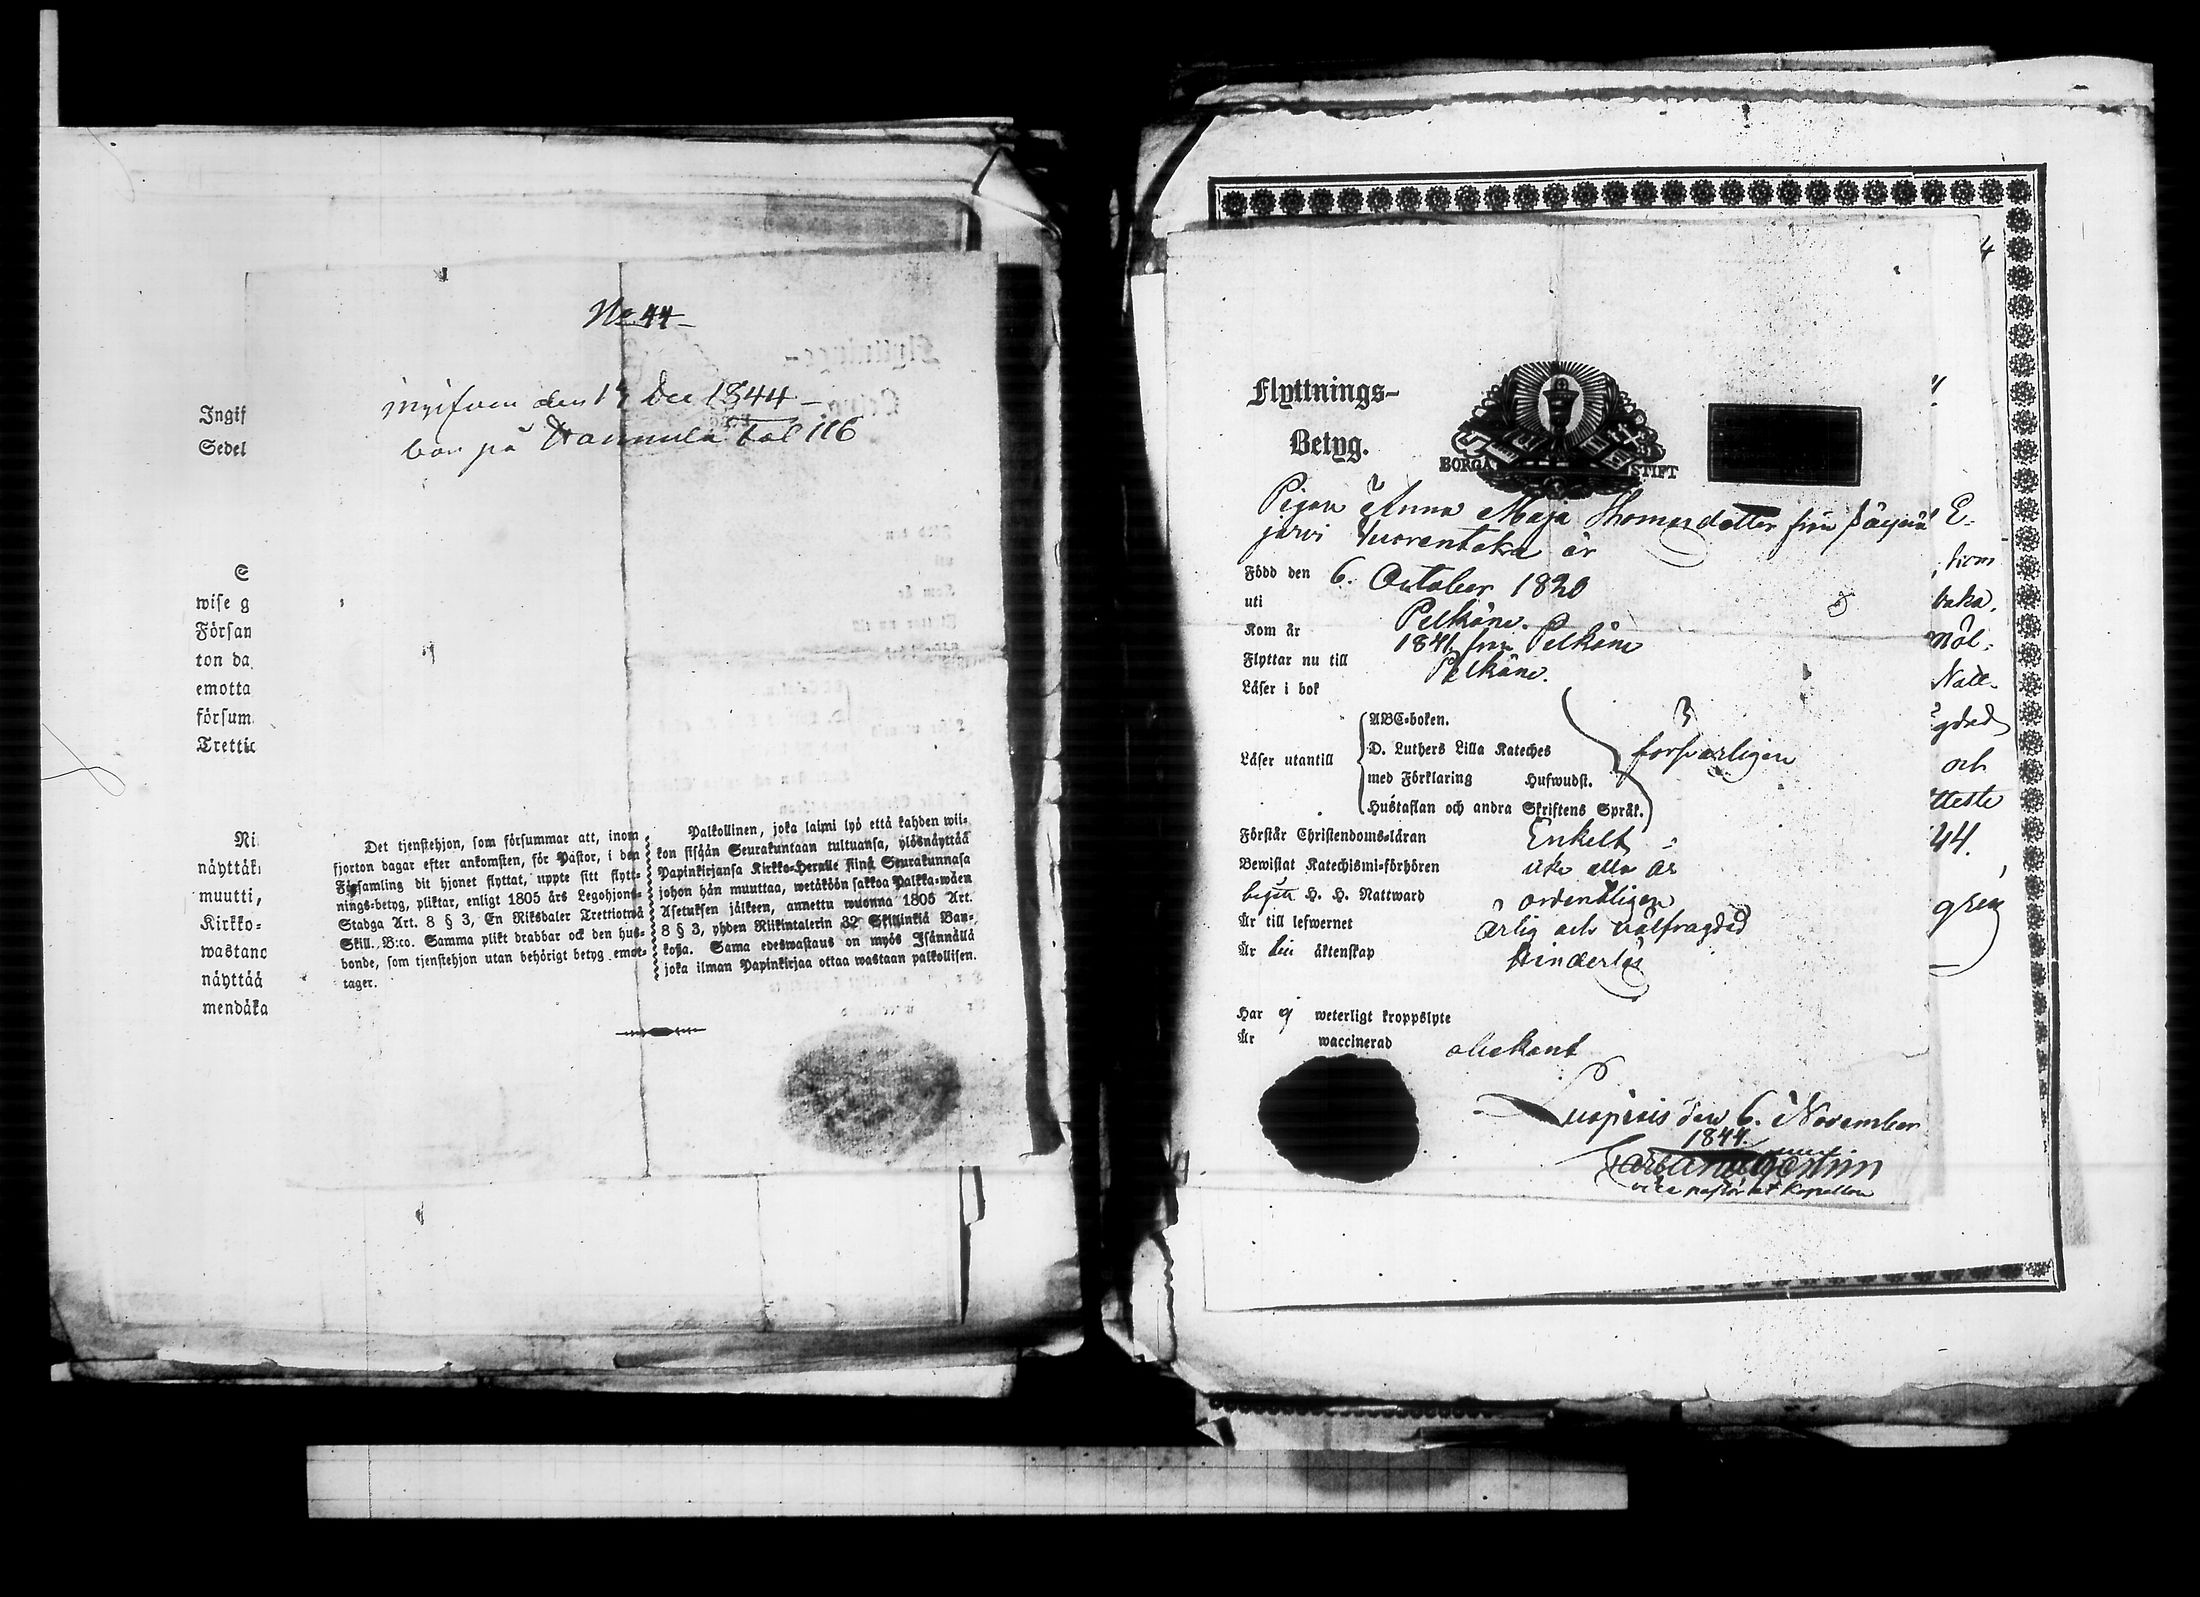 No 44
ingifven den 14 Dec 1844
bor på Hannula tal 116
Ingif
Sedel
S
wise g
Försam
ton da
emotta
försum
Trettio
Ni
näyttäk
muutti,
Kirkko-
wastano
näyttää
mendäka
Det tjenstehjon, som försummar att, inom
fjorton dagar efter ankomsten, för Pastor, i den
Församling dit hjonet flyttat, uppte sitt flytt-
nings-betyg, pliktar, enligt 1805 års Legohjons-
Stadga Art. 8 § 3, En Riksdaler Trettiotwå
Skill. B:co. Samma plikt drabbar ock den hus-
bonde, som tjenstehjon utan behörigt betyg emot-
tager.
Palkollinen, joka laimi lyö että kahden wii-
kon sisään Seurakuntaan tultuansa, ylösnäyttää
Papinkirjansa Kirkko-Herralle siinä Seurakunnasa
johon hän muuttaa, wetäköön sakkoa Palkka-wäen
Asetuksen jälkeen, annettu wuonna 1805 Art.
8 § 3, yhden Riikintalerin 32 Skillinkiä Ban-
kosa. Sama edeswastaus on myös Isännällä
joka ilman Papinkirjaa ottaa wastaan palkollisen.
Flyttnings-
Betyg.
BORGÅ STIFT
Pigan Anna Maja Thomasdotter från
järvi Vuorentaka är
Född den 6. October 1820
uti Pelkäne.
Kom år 1841 från Pelkäne
Flyttar nu till Pelkäne.
Läser i bok
Läser utantill
ABC-boken.
D. Luthers Lilla Kateches
med Förklaring Hufwudst.
Hustaflan och andra Skriftens Språk.
forsvarligen
Förstår Christendoms-läran Enkelt
Bewistat Katechismi-förhören
H. H. Nattward ordentligen
Är till lefwernet ärlig och välfrägdad
Är till äktenskap hinderlös
Har ej weterligt kroppslyte
Är waccinerad obekant
Luopiois den 6. November
1844.
vice pastor et Kapellan
och
44.